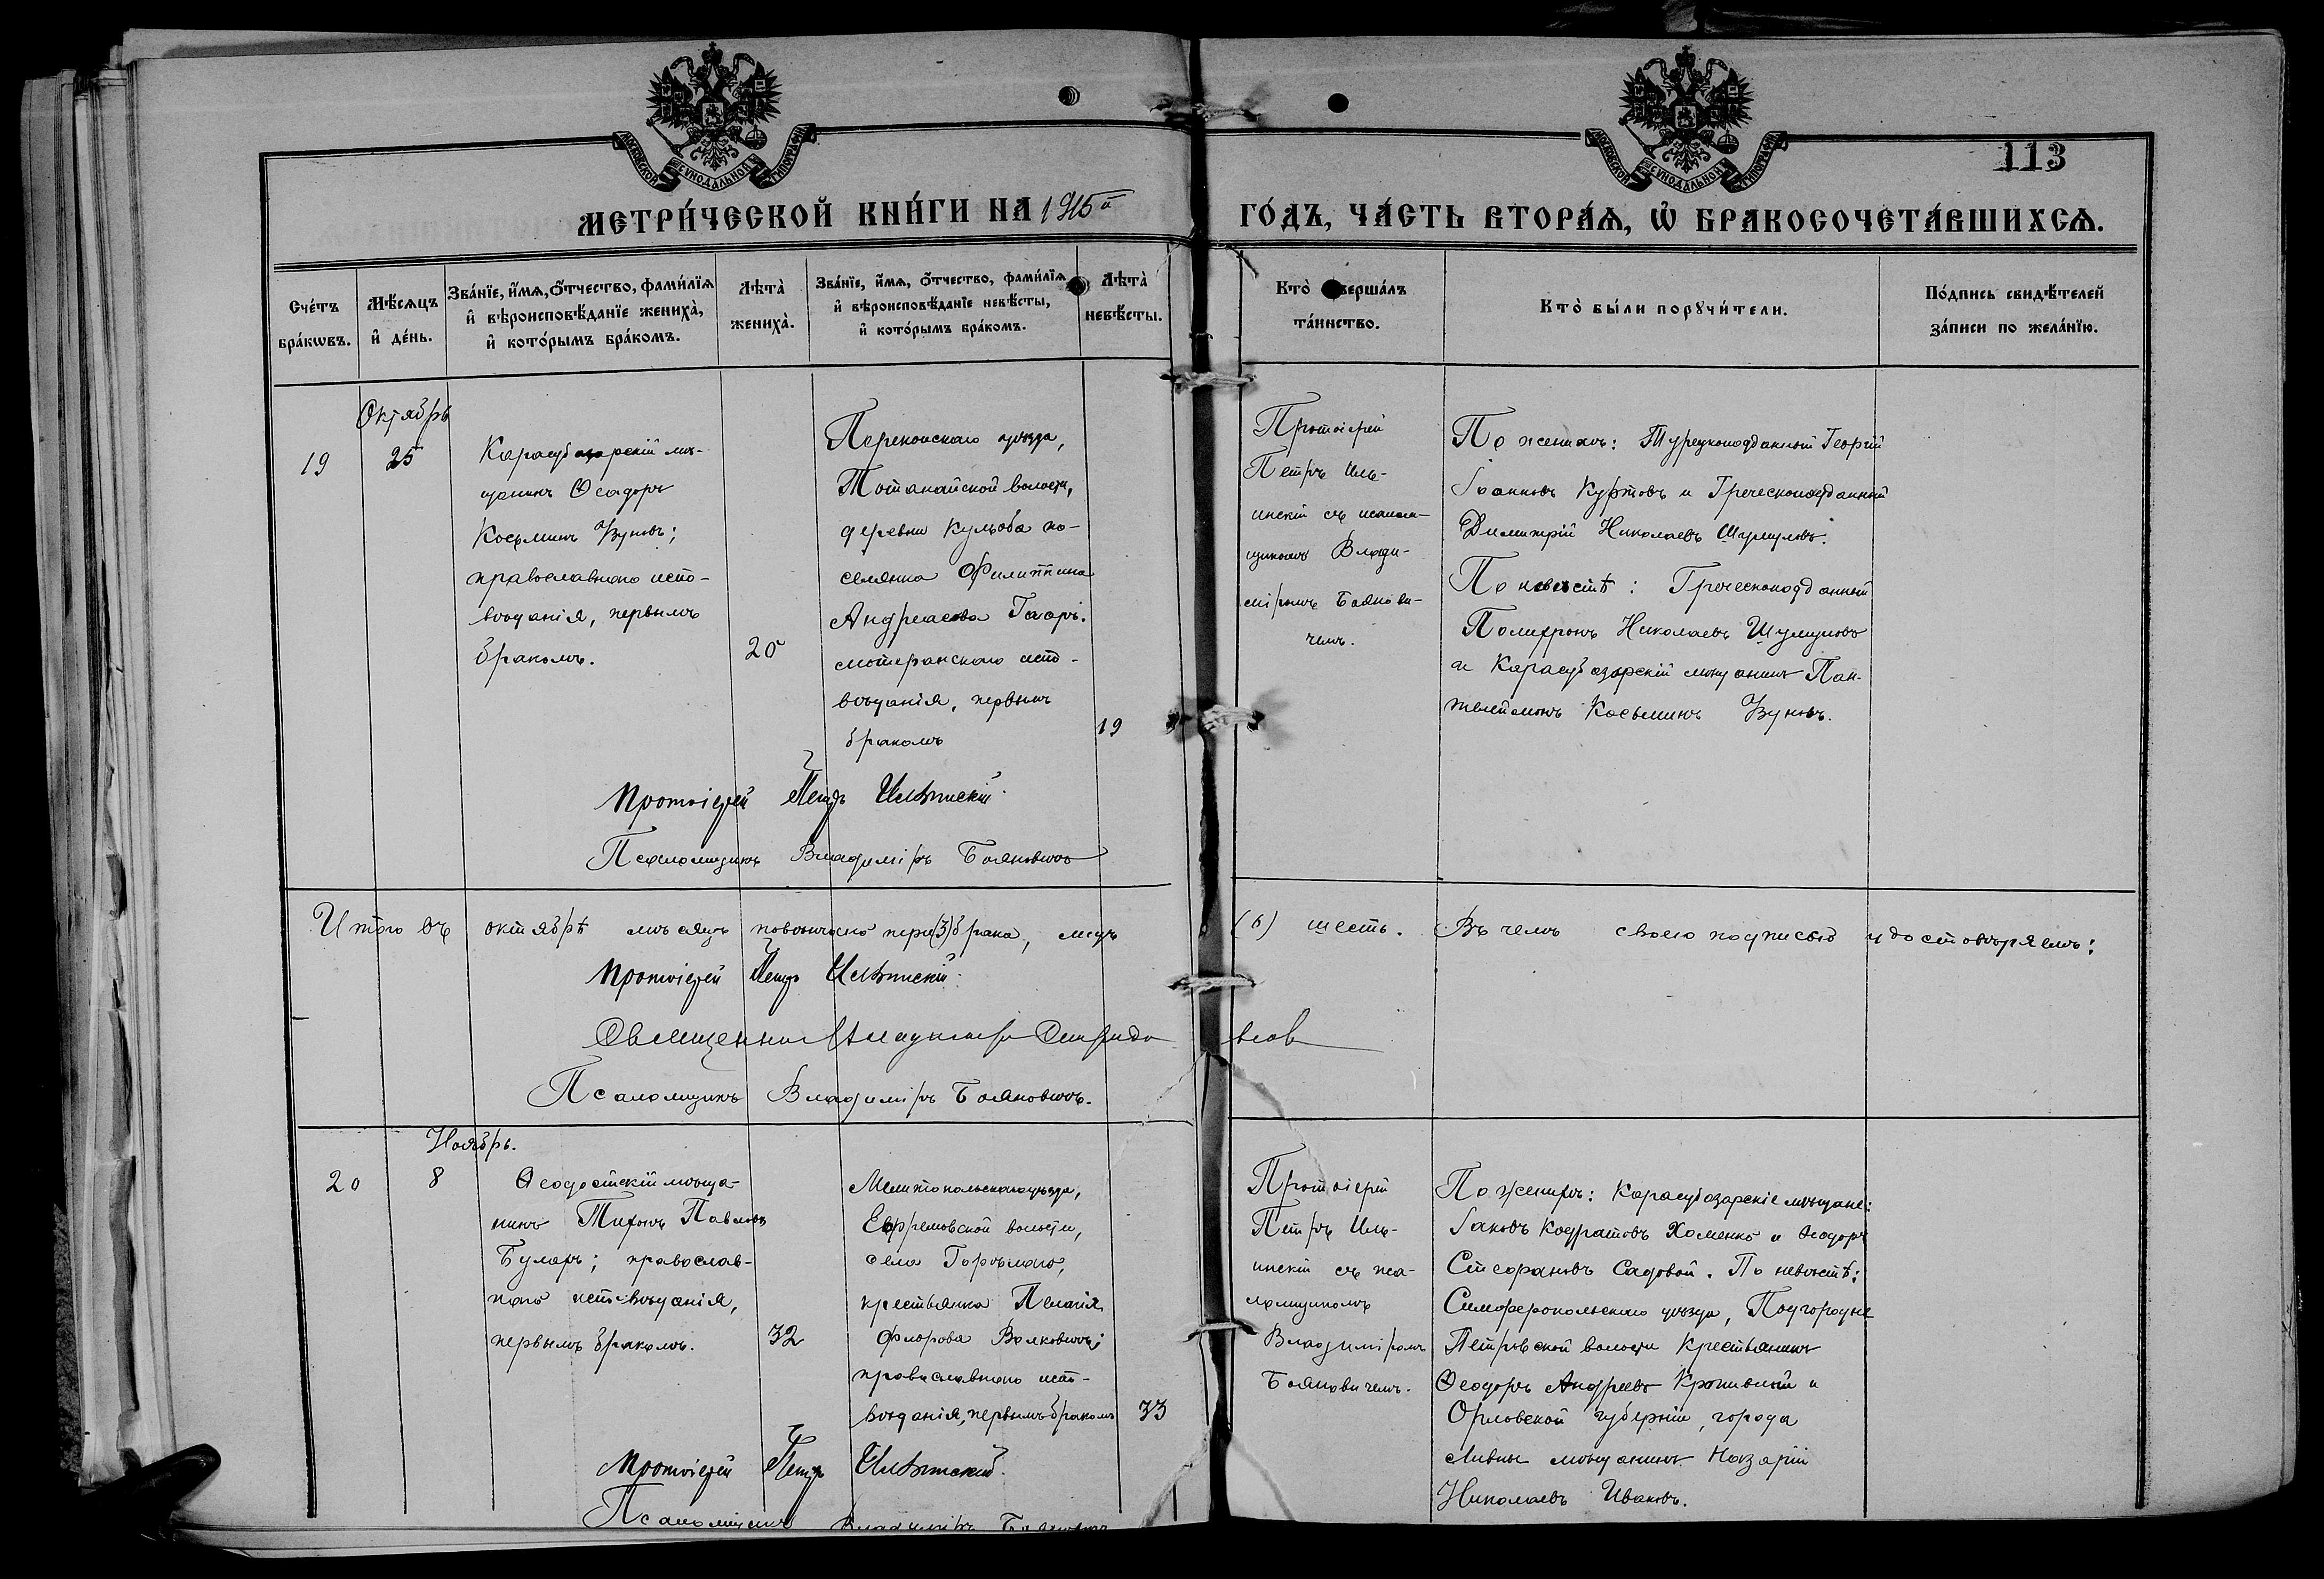 113
МОСКОВСКОЙ СѴНОДАЛЬНОЙ ТИПОГРАФІИ
МОСКОВСКОЙ СѴНОДАЛЬНОЙ ТИПОГРАФІИ
МЕТРИ́ЧЕСКОЙ КНИ́ГИ НА 1915й ГО́ДЪ, ЧА́СТЬ ВТОРА́Ѧ, Ѡ҆ БРАКОСОЧЕТА́ВШИХСѦ.
Сче́тъ бра́кѡвъ.
Мѣ́сѧцъ и҆ де́нь.
Зва́нїе, и҆́мѧ, ѻ҆́тчество, фами́лїѧ и҆ вѣроисповѣ́данїе жениха̀, и҆ кото́рымъ бра́комъ.
Лѣта̀ жениха̀.
Зва́нїе, и҆́мѧ, ѻ҆́тчество, фами́лїѧ и҆ вѣроисповѣ́данїе невѣ́сты, и҆ кото́рымъ бра́комъ.
Лѣта̀ невѣ́сты.
Кто̀ соверша́лъ та́инство.
Кто̀ бы́ли порꙋчи́тели.
По́дпись свидѣ́телей за́писи по жела́нїю.
Октябрь
19
25
Карасубазарскій мѣ-
щанинъ Ѳеодоръ
Косьминъ Узуновъ;
православнаго испо-
вѣданія, первымъ
бракомъ.
20
Перекопскаго уѣзда,
Тотанайской волости,
деревни Кульоба по-
селянка Филиппина
Андреасова
лютеранскаго испо-
вѣданія, первымъ
бракомъ
19
Протоіерей
Петръ Иль-
инскій съ псалом-
щикомъ Влади-
міромъ Боянови-
чемъ.
По женихѣ: Турецкоподданный Георгій
Іоанновъ Куртовъ и Греческоподданный
Димитрій Николаевъ Шумуловъ.
По невѣстѣ: Греческоподданный
Полихронъ Николаевъ Шумуловъ
и Карасубазарскій мѣщанинъ Пан-
телеймонъ Косьминъ Узуновъ.
Протоіерей Петръ Ильинскій.
Псаломщикъ Владиміръ Бояновичъ
Итого въ октябрѣ мѣсяцѣ повѣнчано три (3) брака, лицъ (6) шесть. Въ чемъ своею подписью удостовѣряемъ:
Протоіерей Петръ Ильинскій.
Священникъ
Псаломщикъ Владиміръ Бояновичъ.
Ноябрь.
20
8
Ѳеодосійскій мѣща-
нинъ Тихонъ Павловъ
Булахъ; православ-
наго исповѣданія,
первымъ бракомъ.
32
Мелитопольскаго уѣзда,
Ефремовской волости,
села Горѣлаго,
крестьянка Пелагія
Флорова Волковичъ;
православнаго испо-
вѣданія, первымъ бракомъ
33
Протоіерей
Петръ Иль-
инскій съ пса-
ломщикомъ
Владиміромъ
Бояновичемъ.
По женихѣ: Карасубазарскіе мѣщане:
Іаковъ Кодратовъ Хоменко и Ѳеодоръ
Стефановъ Садовой. По невѣстѣ:
Симферопольскаго уѣзда, Подгородне
Петровской волости крестьянинъ
Ѳеодоръ Андреевъ Кропивный и
Орловской губерніи, города
Ливны мѣщанинъ Назарій
Николаевъ Ивановъ.
Протоіерей Петръ Ильинскій.
Псаломщикъ Владиміръ Бояновичъ